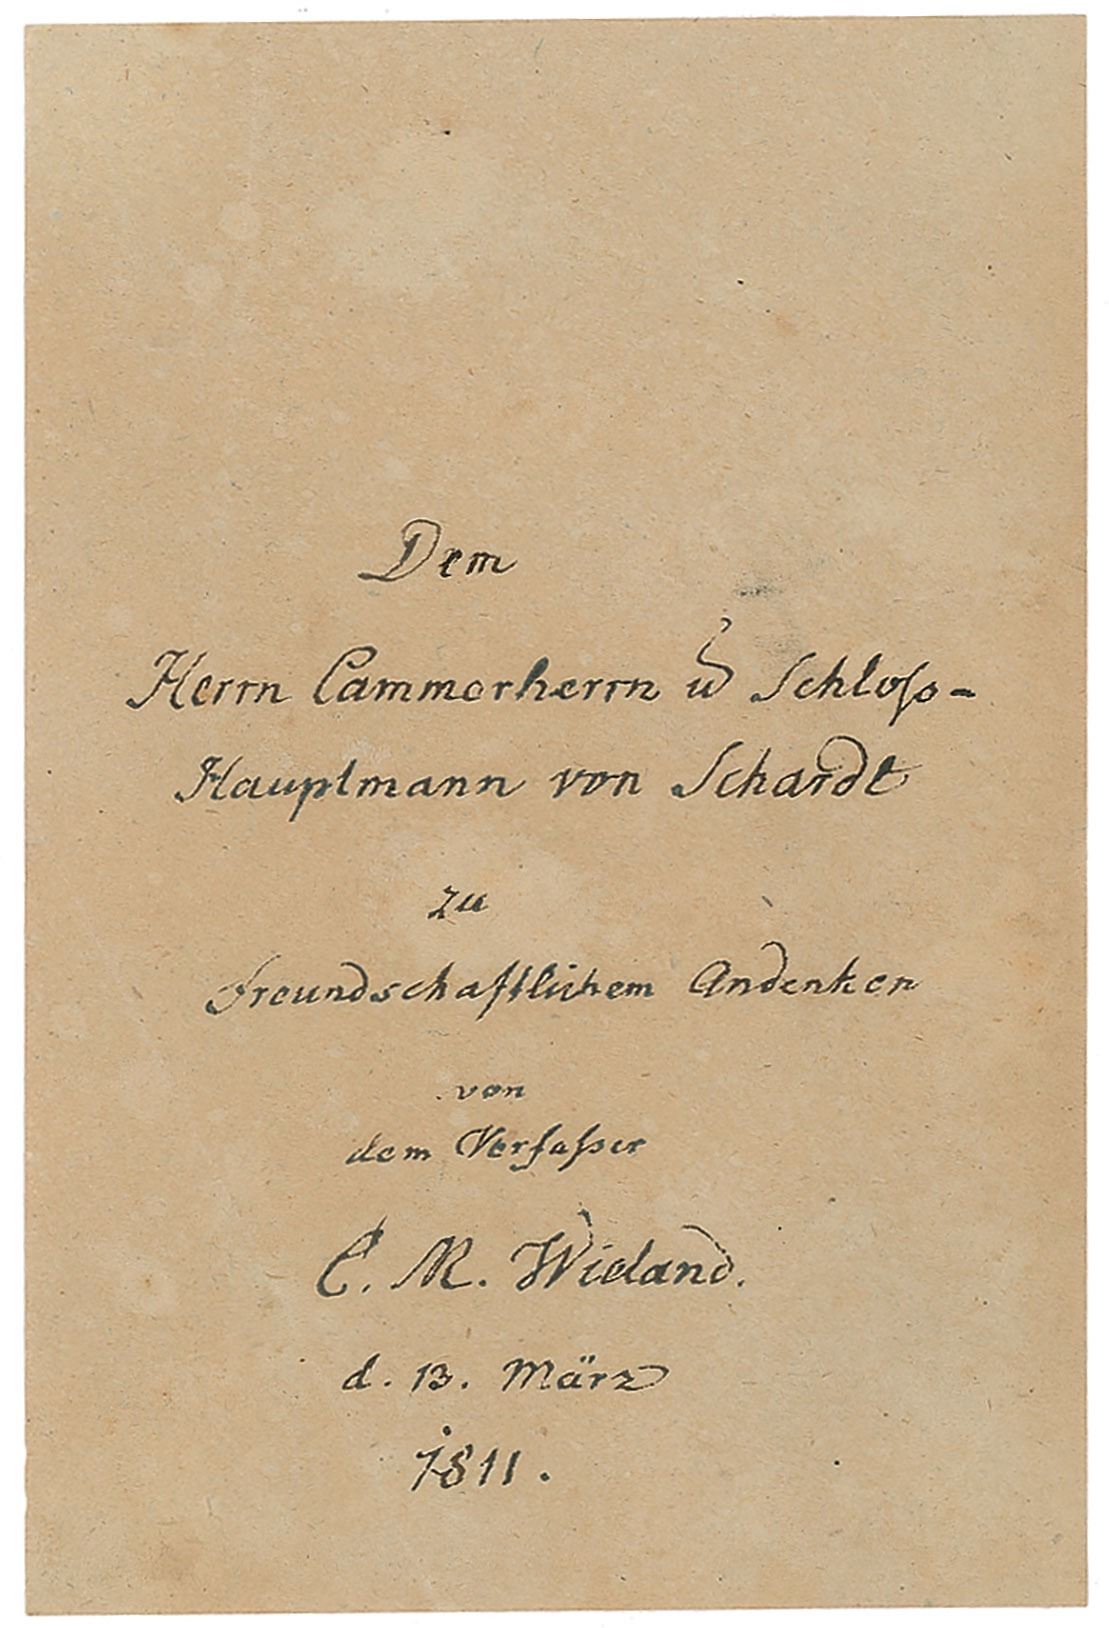 Dem
Herrn Cammerherrn u Schloß-
Hauptmann von Schardt
zu
freundschaftlichem Andenken
von
dem Verfaßer
C. M. Wieland.
d. 13. März
1811.